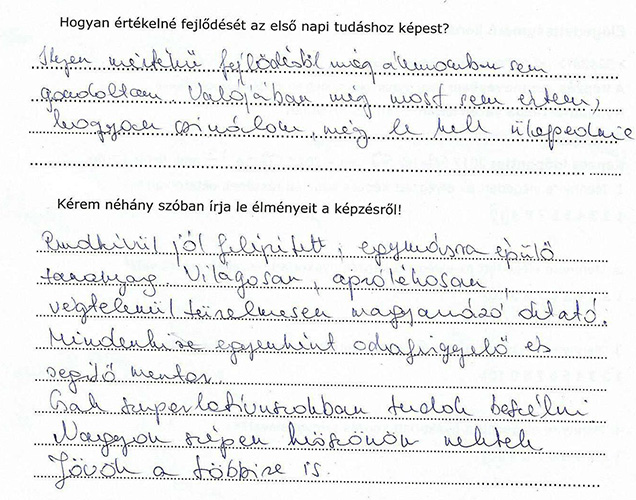 Hogyan értékelné fejlődését az első napi tudáshoz képest?
Ilyen mértékű fejlődésről még álmomban sem
gondoltam. Valójában még most sem értem,
hogyan csinálom, még le kell ülepednie
Kérem néhány szóban írja le élményeit a képzésről!
Rendkívül jól felépített, egymásra épülő
tananyag. Világosan, aprólékosan,
végtelenül türelmesen magyarázó oktató.
Mindenkire egyenként odafigyelő és
segítő mentor.
Csak szuperlatívuszokban tudok beszélni
Nagyon szépen köszönöm nektek
Jövök a többire is.